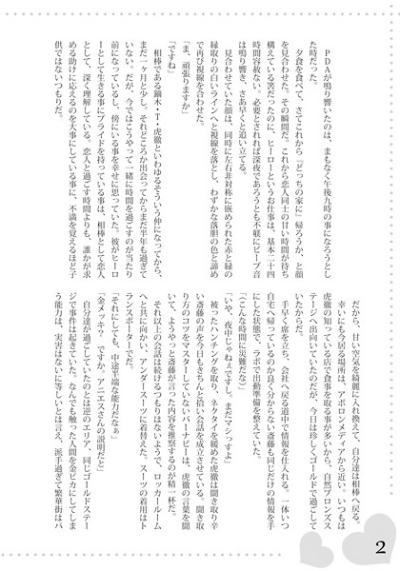 ＰＤＡが鳴り響いたのは、まもなく午後九時の事になろうとし
た時だった。
夕食を食べて、さてこれから『どっちの家に』帰ろうか、と顔
を見合わせた。その瞬間だ。これから恋人同士の甘い時間が待ち
構えている筈だったのに、ヒーローというお仕事は、基本二十四
時間容赦ない。必要とされれば深夜であろうとも不眠にビープ音
は鳴り響き、さあ早くと追い立てる。
見合わせていた顔は、同時に左右非対称に嵌められた赤と緑の
縁取りの白いラインへと視線を落とし、わずかな落胆の色と諦め
で再び視線を合わせた。
「ま、頑張りますか」
「ですね」
相棒である鏑木・Ｔ・虎徹といわゆるそういう仲になってから、
まだ一ヶ月と少し、それどころか出会ってからまだ半年も過ぎて
いない。だが、今ではこうやって一緒に時間を過ごすのが当たり
前になっているし、傍にいる事を幸せに思っていた。彼がヒーロ
ーとして生きる事にプライドを持っている事は、相棒として恋人
として、深く理解している。恋人と過ごす時間よりも、誰かが求
める助けに応えるのを大事にしている事に、不満を覚えるほど子
供ではないつもりだ。
だから、甘い空気を綺麗に入れ換えて、自分達は相棒へ戻る。
幸いにも今居る場所は、アポロンメディアから近い。いつもは
虎徹の知っている店で食事を取る事が多いから、自然ブロンズス
テージへ出向いていたのだが、今日は珍しくゴールドで過ごして
いたからだ。
手早く席を立ち、会社へ戻る道中で情報を仕入れる。一体いつ
自宅へ帰っているのか良く分からない斎藤も同じだけの情報を手
にした状態で、ラボで出動準備を整えていた。
「（こんな時間に災難だな）」
「いや、夜中じゃねぇですし、まだマシっすよ」
被ったハンチングを取り、ネクタイを緩めた虎徹は聞き取り辛
い斎藤の声を今日もきちんと拾い会話を成立させている。聞き取
りのコツをマスターしていないバーナビーは、虎徹の言葉を聞
いて、ようやっと斎藤が言った内容を推察するのが精一杯だ。
それ以上の会話は続けるつもりはないようで、ロッカールーム
へと共に向かい、アンダースーツに着替えた。スーツの着用はト
ランスポーターでだ。
「それにしても、中途半端な能力だなぁ」
「金メッキ？　ですか。アニエスさんの説明だと」
自分達が過ごしていたのとは逆のエリア、同じゴールドステー
ジで事件は起きていた。なんでも触った人間を金ピカにしてしま
う能力は、実害はないに等しいとは言え、派手過ぎて繁華街はパ
2